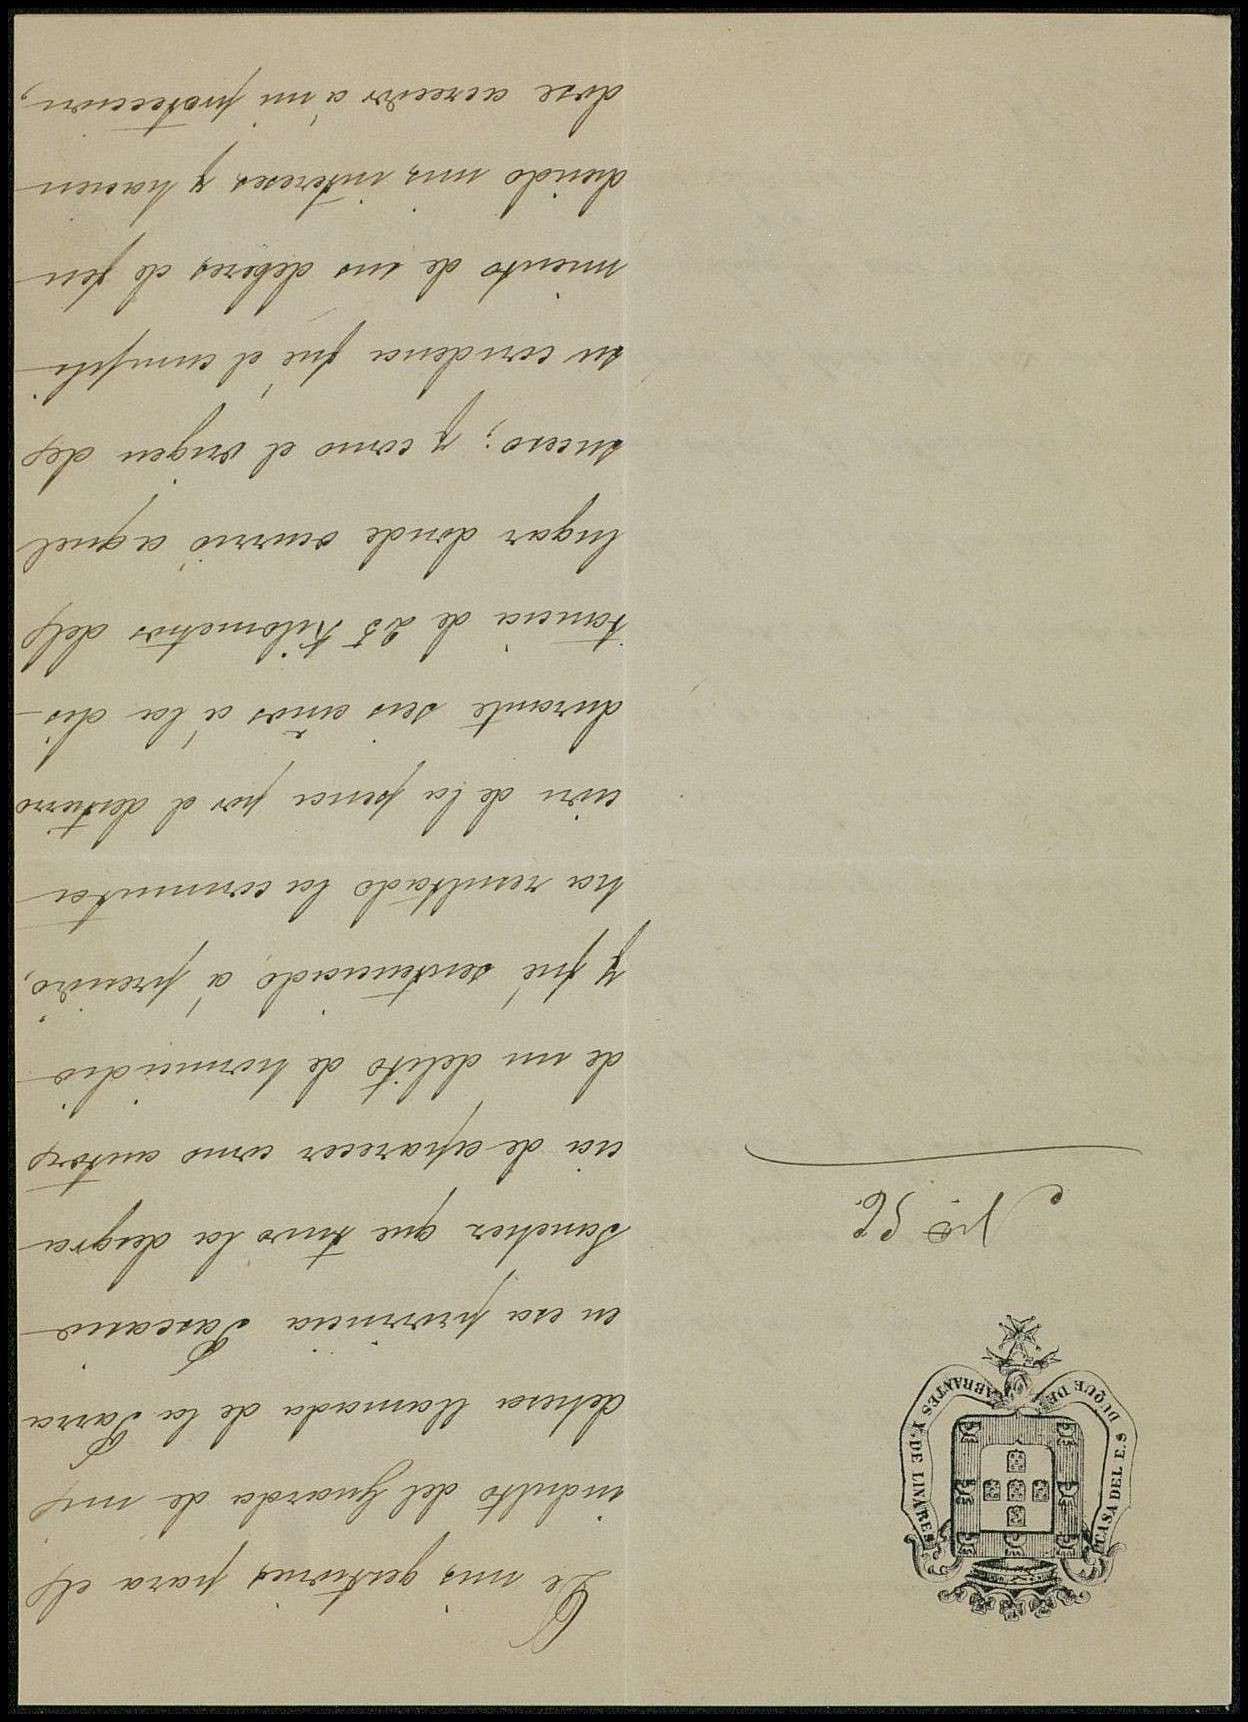 CASA DEL E.S DUQUE DE ABRANTES Y DE LINARES
Nº 56.
De mis gestiones para el
indulto del Guarda de mi
dehesa llamada de la Parra
en esa provincia Pascasio
Sanchez que tuvo la desgra
cia de aparecer como autor
de un delito de homicidio
y fué sentenciado á presidio,
ha resultado la conmuta
ción de la pena por el destierro
durante seis años á la dis-
tancia de 25 Kilometros del
lugar donde ocurrió aquel
suceso; y como el origen de
su condena fué el cumpli-
miento de sus deberes de fen
diendo mis intereses y hacien
dose acreedor á mi proteccion,